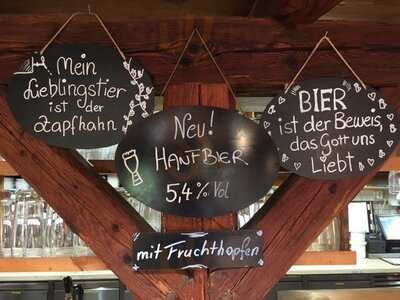 Mein
Lieblingstier
ist der
Zapfhahn
Neu!
HANFBIER
5,4% Vol
BIER
ist der Beweis,
das Gott uns
Liebt
mit Fruchthopfen